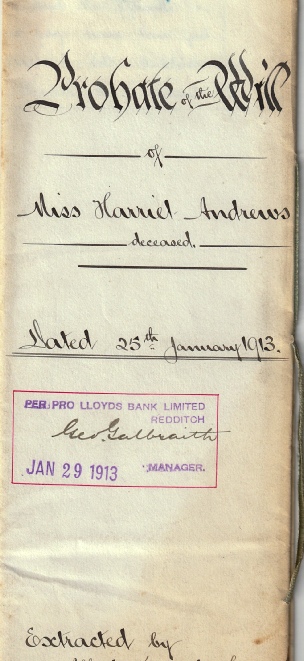 Probate of the Will
of
Miss Harriet Andrews
deceased.
Dated 25th January 1913.
PER PRO LLOYDS BANK LIMITED
REDDITCH
Geo. Galbraith
JAN 29 1913 MANAGER.
Extracted by